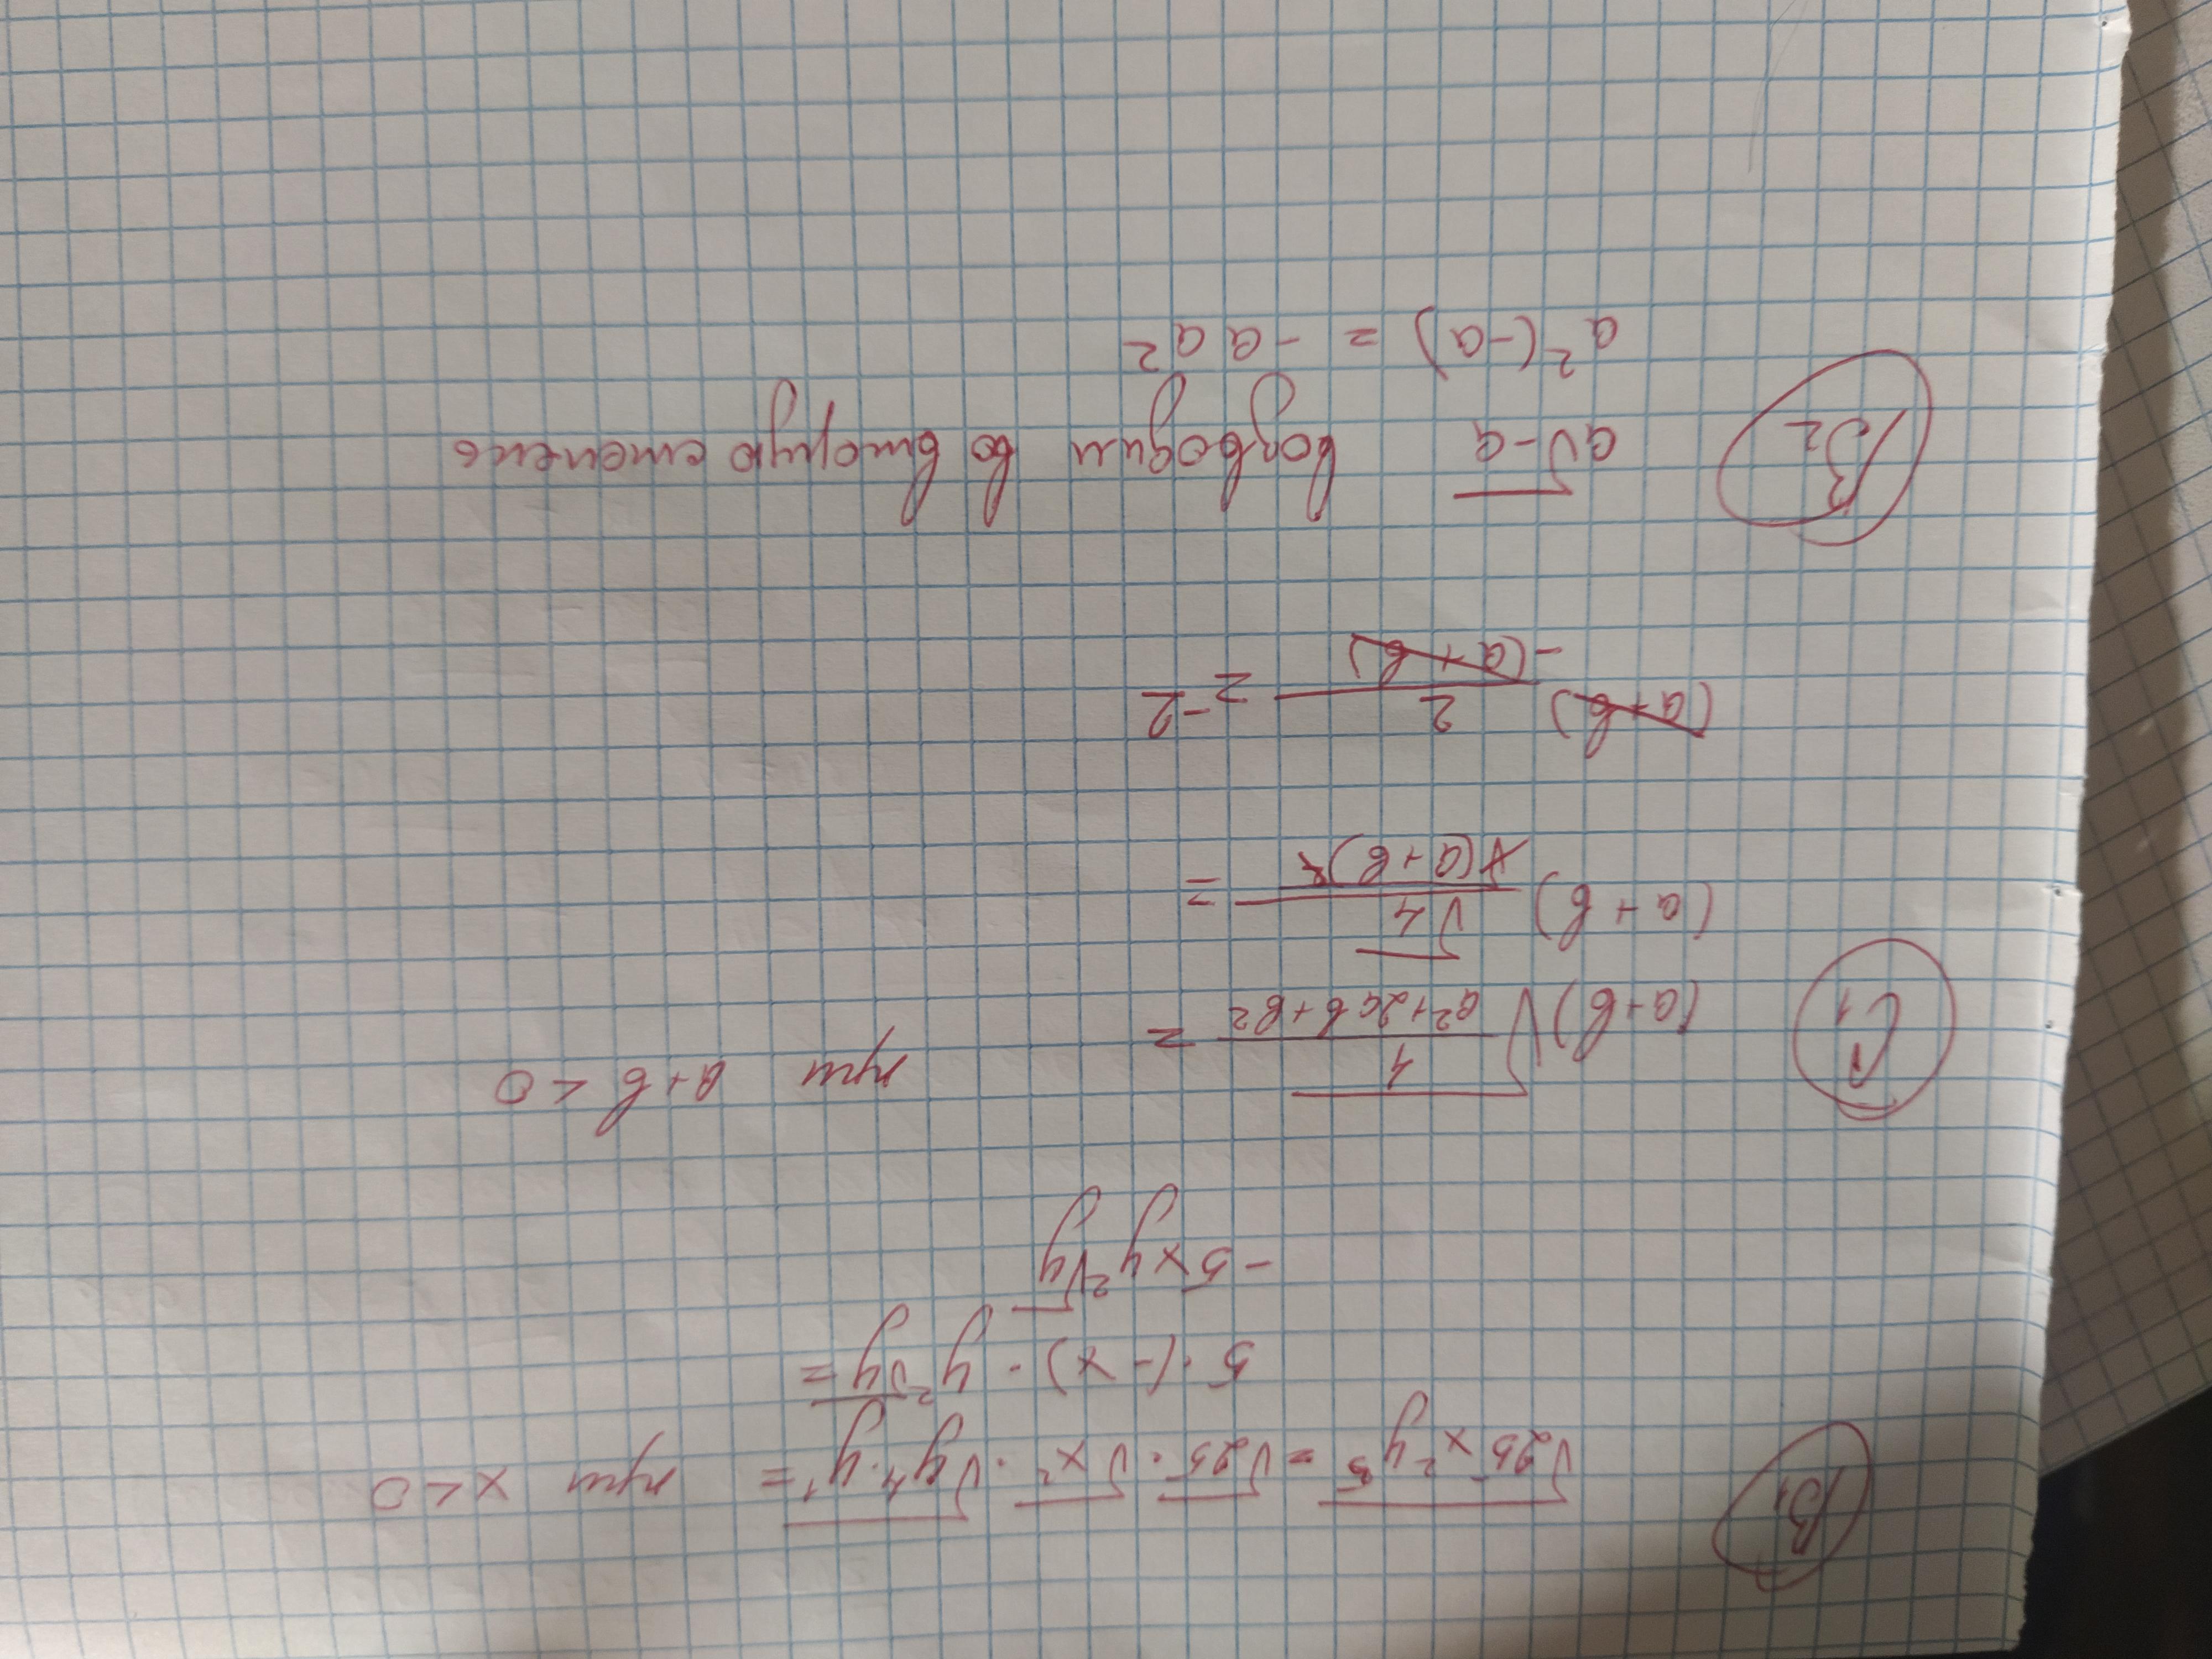 B1 √25x²y⁵ = √25 · √x² · √y⁴·y¹ = при x < 0
5 · (-x) · y²√y =
-5xy²√y
C1 (a+b)√4/(a²+2ab+b²) = при a+b < 0
(a+b) √4/(a+b)² =
(a+b) 2/-(a+b) = -2
B2 a√-a возводим во вторую степень
a²(-a) = -a a²